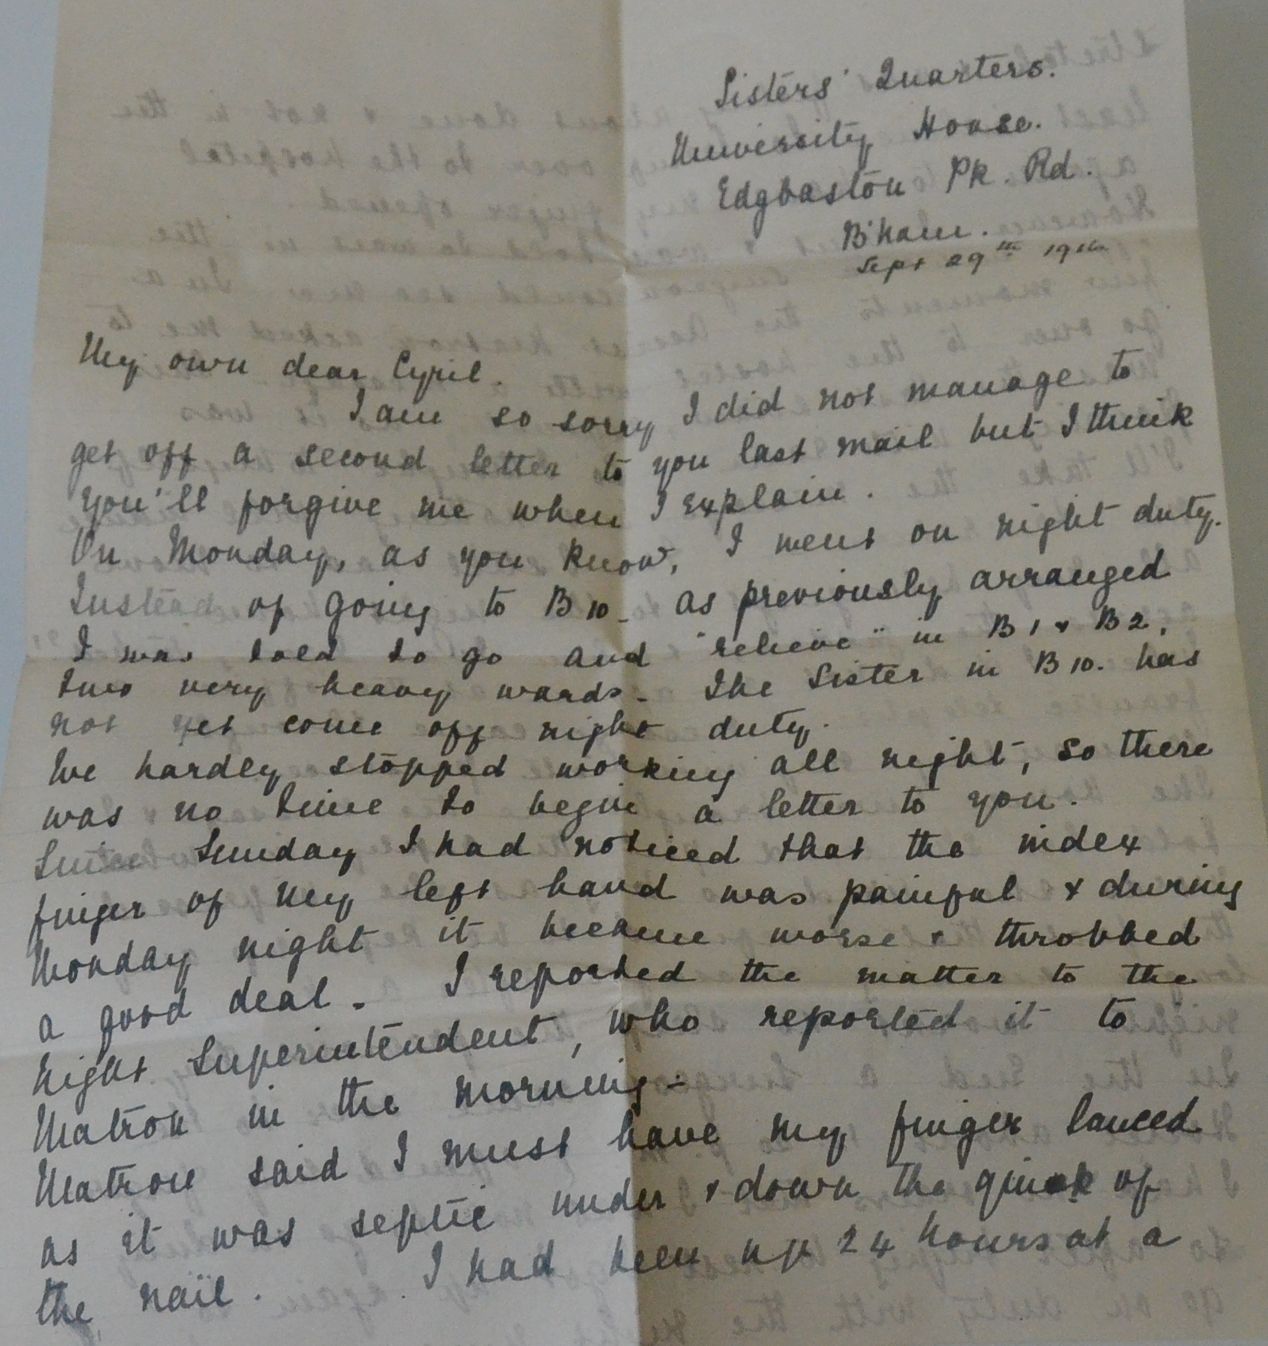 Sisters' Quarters.
University House.
Edgbaston Pk. Rd.
B'ham.
Sept 29th
My own dear Cyril.
I am so sorry I did not manage to
get off a second letter to you last mail but I think
you'll forgive me when I explain.
On Monday, as you know, I went on night duty.
Instead of going to B10 as previously arranged
I was told to go and "relieve" in B1 & B2,
two very heavy wards. The Sister in B10. has
not yet come off night duty.
We hardly stopped working all night, so there
was no time to begin a letter to you.
Since Sunday I had noticed that the index
finger of my left hand was painful & during
Monday night it became worse & throbbed
a good deal. I reported the matter to the
night Superintendent, who reported it to
Matron in the morning.
Matron said I must have my finger lanced
as it was septic under & down the quick of
the nail. I had been up 24 hours at a